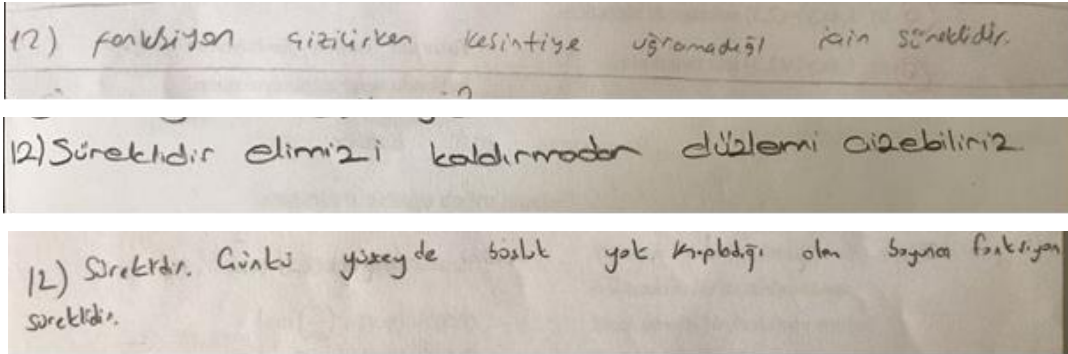 12) fonksiyon çizilirken kesintiye uğramadığı için süreklidir.
12) Süreklidir elimizi kaldırmadan düzlemi çizebiliriz
12) Süreklidir. Çünkü yüzeyde boşluk yok kapladığı alan boyunca fonksiyon
süreklidir.